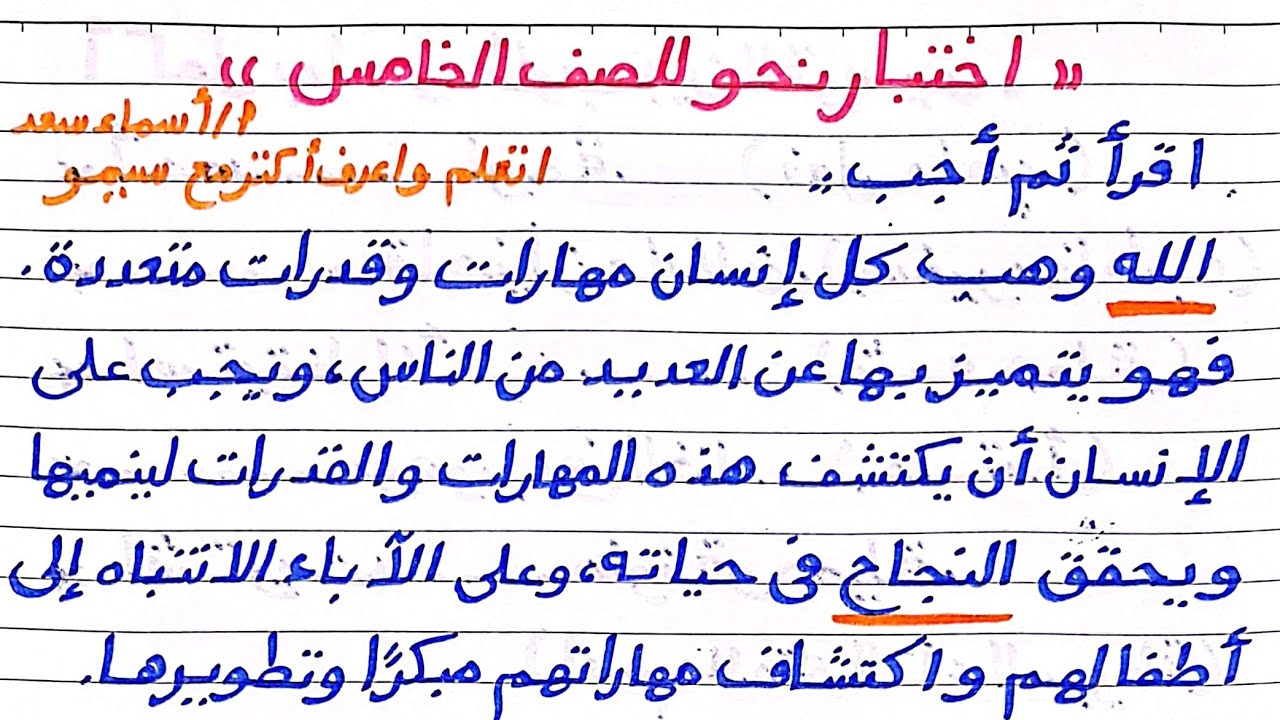 " اختبار نحو للصف الخامس "
م/أسماء سعد
اقرأ ثم أجب ..
اتعلم واعرف أكتر مع سيمو
الله وهب كل إنسان مهارات وقدرات متعددة.
فهو يتميز بها عن العديد من الناس، ويجب على
الإنسان أن يكتشف هذه المهارات والقدرات لينميها
ويحقق النجاح فى حياته، وعلى الآباء الانتباه إلى
أطفالهم واكتشاف مهاراتهم مبكرًا وتطويرها.